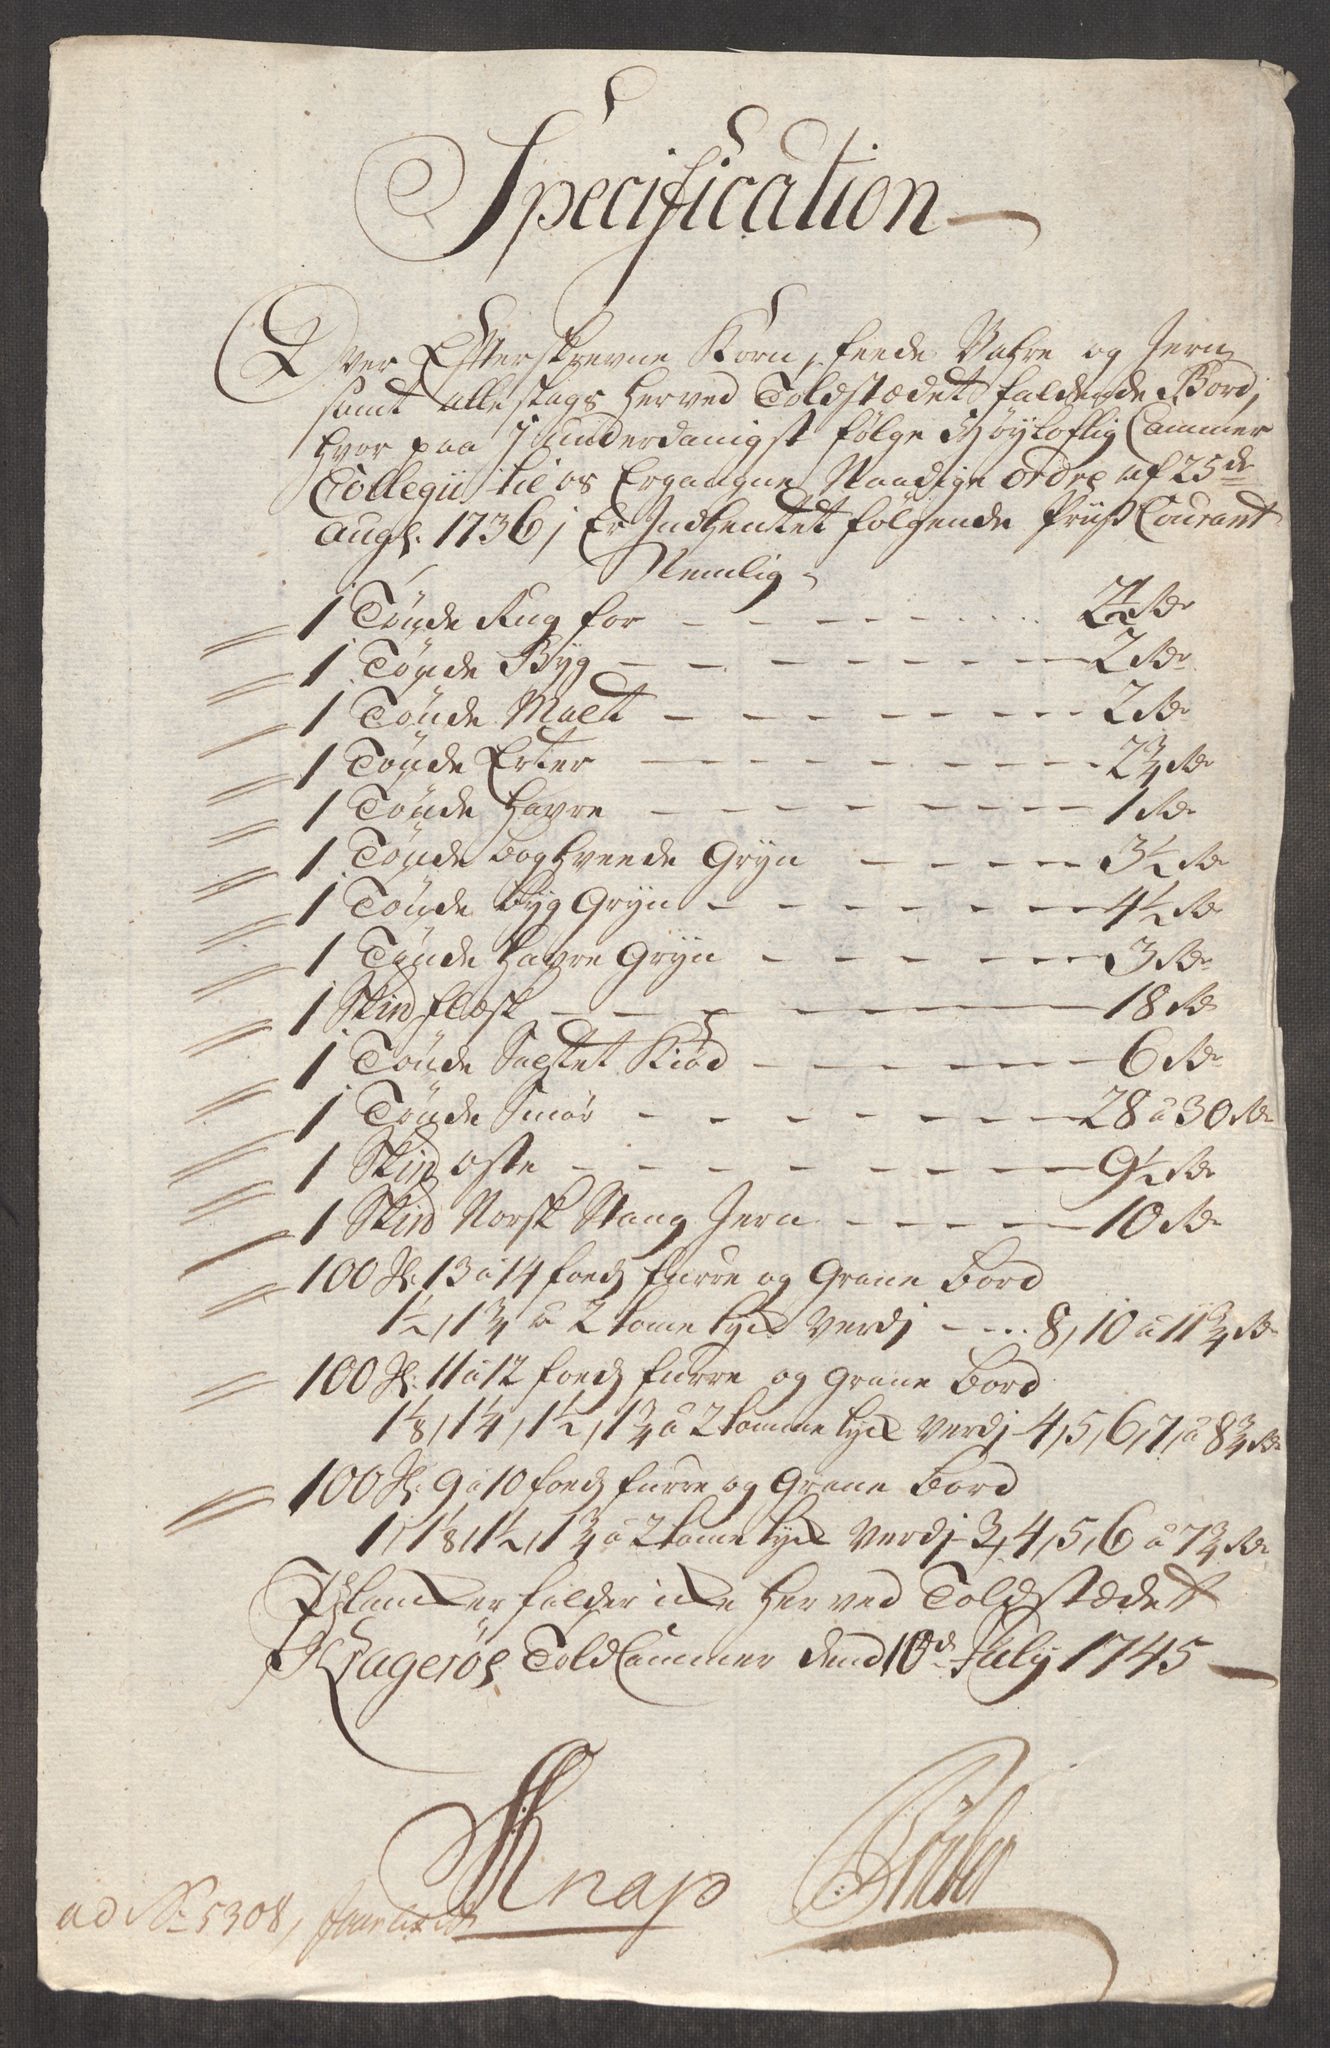 Specification
Over Efterskrevne Korn, feede Vahre og Jern
samt alle slags her ved Toldstædet faldende Bord,
hvor paa I underdanigst følge Høyloflig Cammer
Collegii til os Ergangne Naadige ordre af 25de
Augs. 1736, Er Indhentet følgende Priiß Courant
Nemlig
1 Tønde Rug for - - - - - - - 2½ Rdr
1 Tønde Byg - - - - - - - 2 Rdr
1 Tønde Malt - - - - - - - 2 Rdr
1 Tønde Erter - - - - - - - 2¾ Rdr
1 Tønde Havre - - - - - - - 1 Rdr
1 Tønde boghveede Gryn - - - - 3½ Rdr
1 Tønde byg Gryn - - - - - - 4½ Rdr
1 Tønde Havre Gryn - - - - - 3 Rdr
1 Skird flesk - - - - - - - 18 Rdr
1 Tønde Saltet Kiød - - - - - 6 Rdr
1 Tønde Smør - - - - - - 28 a 30 Rdr
1 Skird oste - - - - - - - 9½ Rdr
1 Skird Norsk Stang Jern - - - - 10 Rdr
100 st: 13 a 14 foeds furre og Grane bord
1½, 1¾ a 2 tome tyck verdj - - - 8, 10 a 11¾ Rdr
100 st: 11 a 12 foeds furre og Grane bord
1⅛, 1¼, 1½, 1¾ a 2 tomme tyck verdj 4, 5, 6, 7, a 8¾ Rdr
100 st: 9 a 10 foeds furre og Grane bord
1, 1⅛, 1½, 1¾ a 2 tome tyck verdj 3, 4, 5, 6 a 7¾ Rdr
Plancker falder icke her ved Toldstædet
Kragerøe Told Cammer dend 10de July 1745
Knap
ad No 5308,